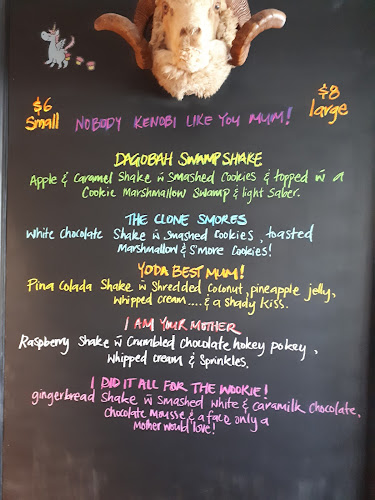 $6
Small
$8
large
NOBODY KENOBI LIKE YOU MUM!
DAGOBAH SWAMP SHAKE
Apple & Caramel Shake w̄ Smashed Cookies & topped w̄ a
Cookie Marshmallow Swamp & light Saber.
THE CLONE SMORES
White Chocolate Shake w̄ Smashed Cookies, toasted
Marshmallow & S'more Cookies!
YODA BEST MUM!
Pina Colada Shake w̄ Shredded Coconut, pineapple jelly,
whipped cream.....& a shady kiss.
I AM YOUR MOTHER
Raspberry Shake w̄ Crumbled Chocolate hokey pokey,
whipped cream & Sprinkles.
I DID IT ALL FOR THE WOOKIE!
gingerbread Shake w̄ smashed white & caramilk chocolate,
chocolate mousse & a face only a
Mother would love!